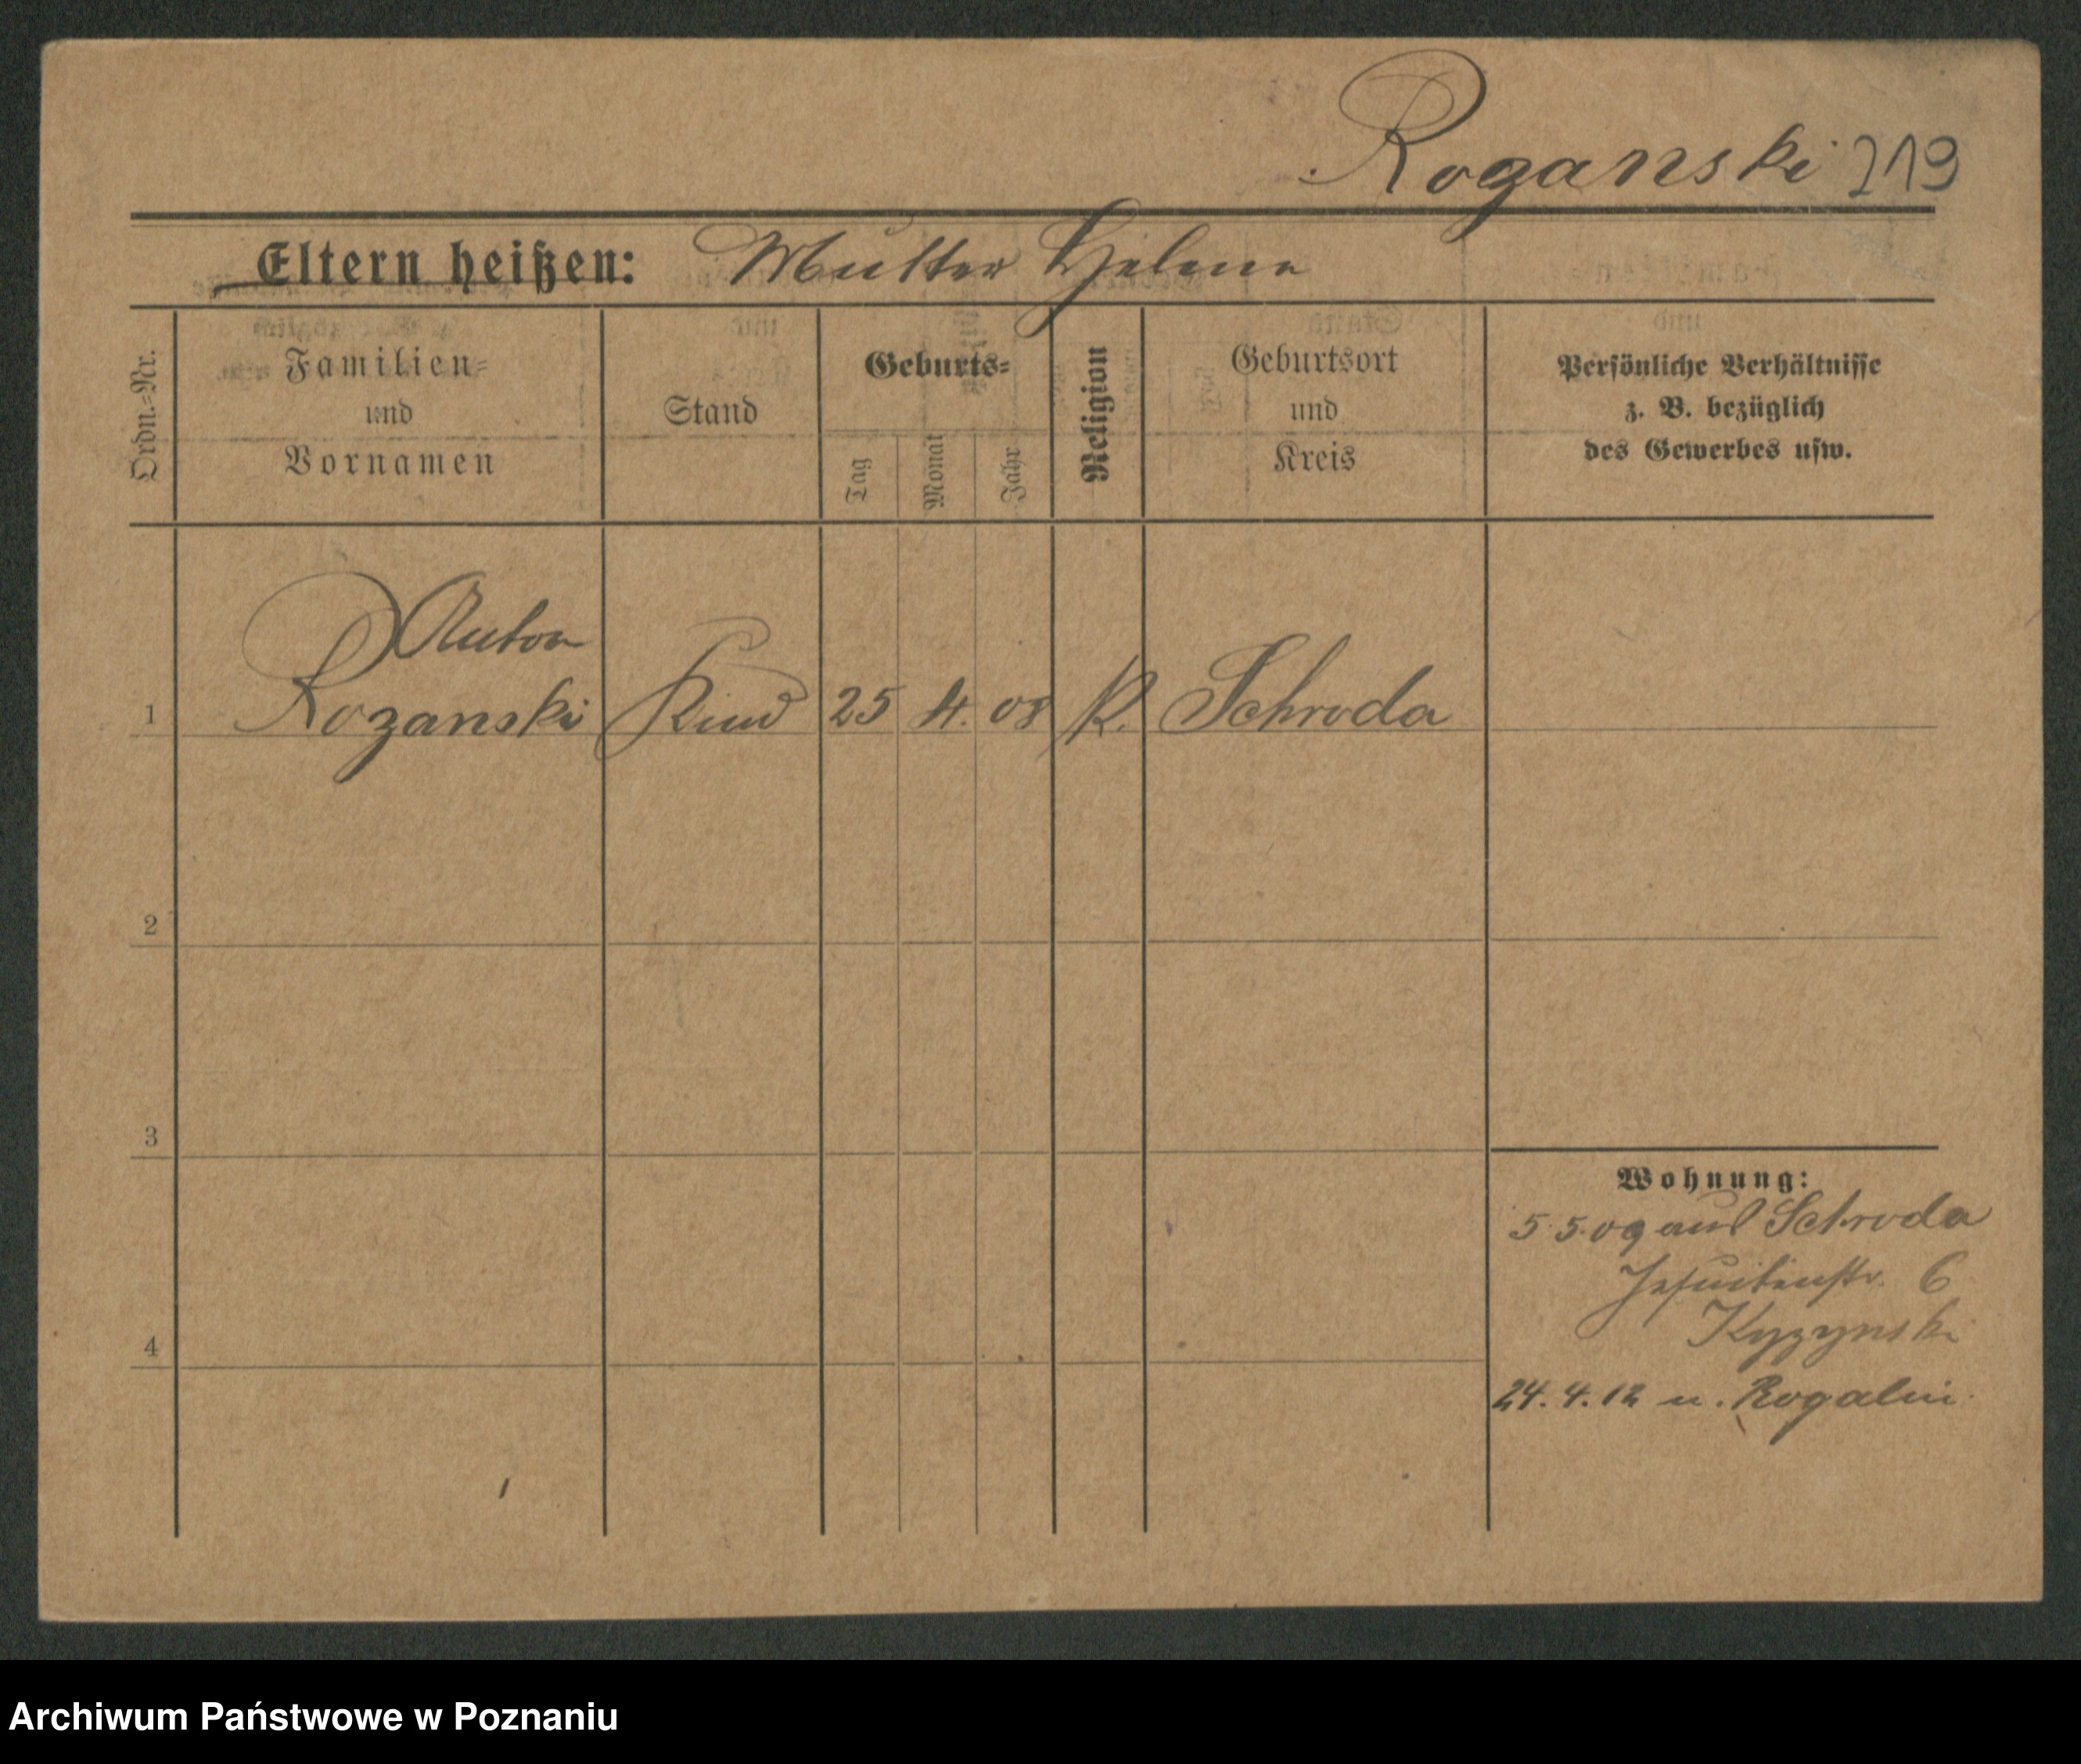 Rozanski 219
Eltern heißen: Mutter Helena
Ordn.=Nr.
Familien=
und
Vornamen
Stand
Geburts=
Tag
Monat
Jahr
Religion
Geburtsort
und
Kreis
Persönliche Verhältnisse
z. B. bezüglich
des Gewerbes usw.
Anton
1 Rozanski Kind 25 4. 08 K. Schroda
2
3
4
Wohnung:
5.5.09 aus Schroda
Jesuitenstr. 6
24.4.12 n. Rogalin.
Archiwum Państwowe w Poznaniu